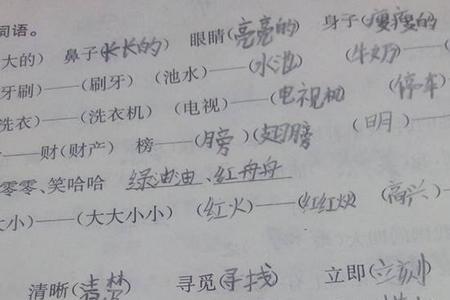 词语。
大的) 鼻子(长长的) 眼睛(亮亮的) 身子(瘦瘦的
牙刷)——(刷牙) (池水)——(水池) (牛奶)——(
洗衣)——(洗衣机) (电视)——(电视机 (停车)
——财(财产) 榜——(膀)(翅膀) (日月)——
零零、笑哈哈 绿油油、红舟舟
大小)——(大大小小) (红火)——(红红火 (高兴)——
清晰( 寻觅(寻找) 立即(立刻)